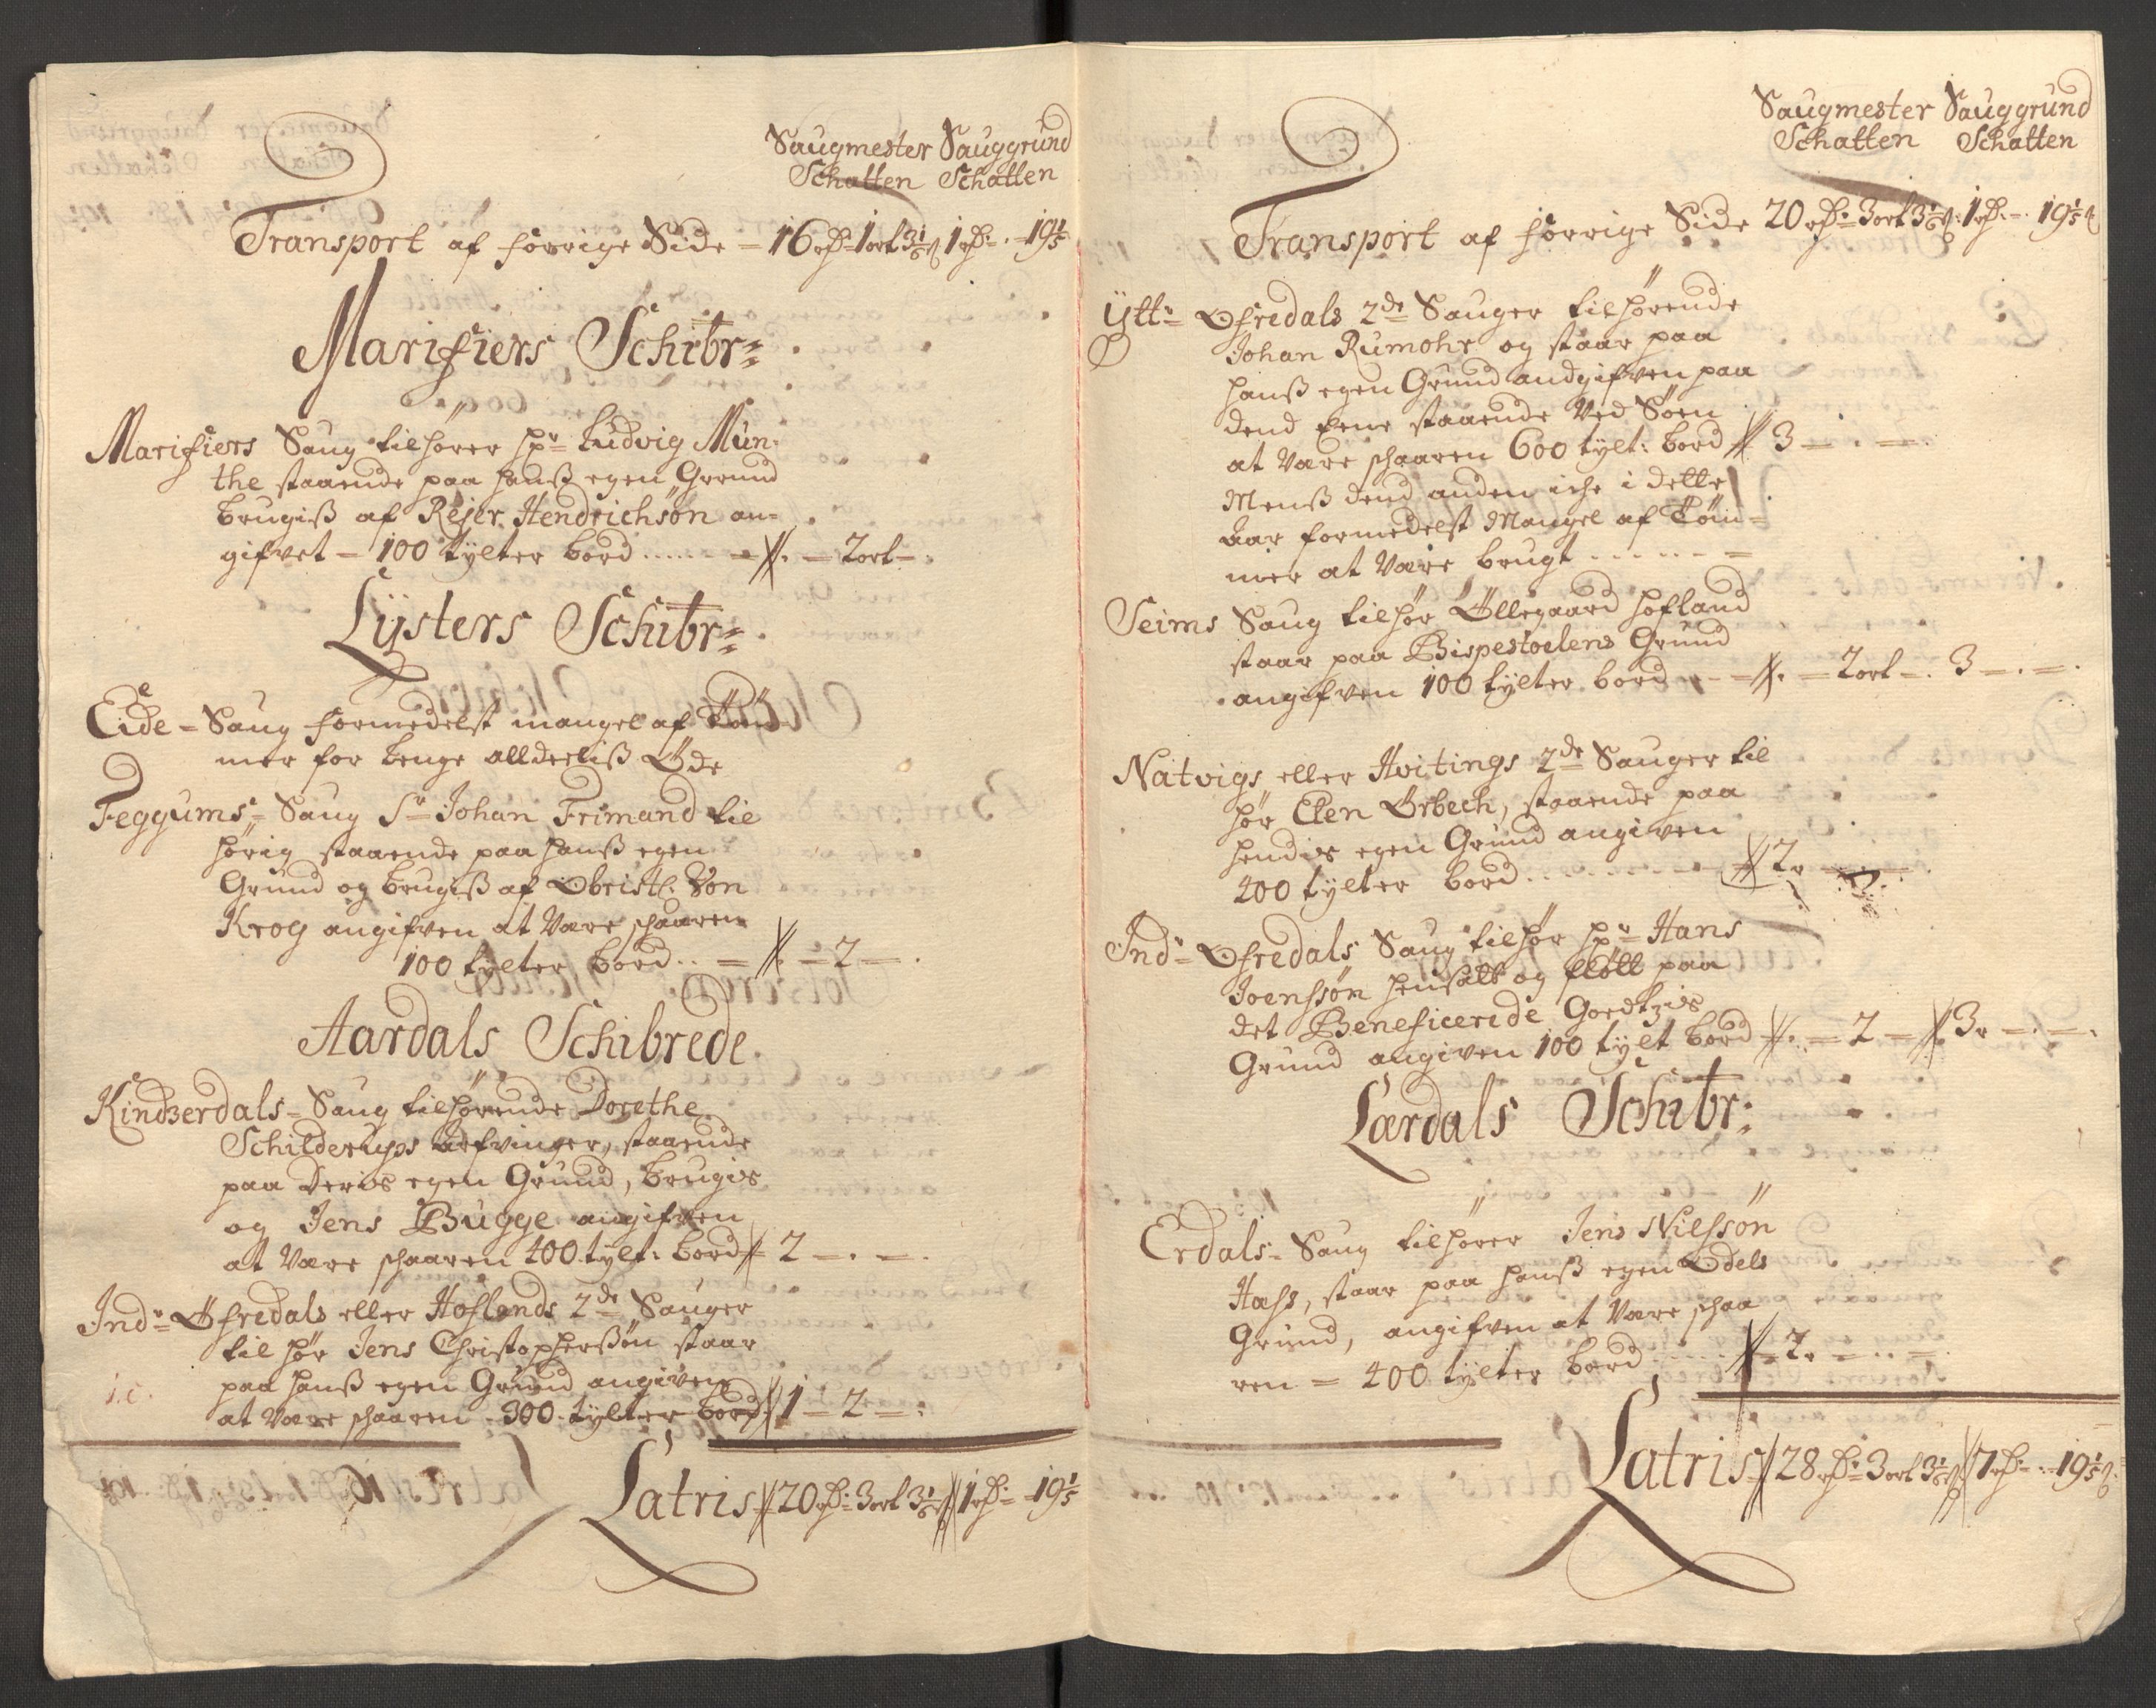 Saugmester Sauggrund
Schatten Schatten
Transport af forrige Side = 16 rd = 1 ort 3 1/6 β 1 rd = . = 19 1/5
Marifiers Schibr=
Marifiers Saug tilhører Hr Ludvig Mun-
the staaende paa hanß egen Grund
brugiß af Rejer Hendrichsøn an=
gifvet = 100 tylter bord ...... = // . = 2 ort = .
Lysters Schibr=
Eide = Saug formedelst mangel af Tøm-
mer for lenge alldeeliß Øde
Feggums = Saug Sr Johan Frimand til
hørig staaende paa hanß egen
Grund og brugiß af Obristl: Von
Krog angifven at være schaaren
100 tylter bord .. = // . = 2 = .
Aardals Schibrede
Kindzerdals = Saug tilhørende Dorethe
Schilderups arfvinger, staaende
paa Deris egen Grund, brugis
og Jens Bugge angifven
at være schaaren 400 tylt: bord // 2 = . = .
Indr Øfredals eller Hoflands 2de Sauger
til hør Jens Christophersøn staar
paa hanß egen Grund angiven
at være schaaren 300 tylter bord // 1 = 2 = .
Latris // 20 rd = 3 ort 3 1/6 β // 1 rd = 19 1/5
Saugmester Sauggrund
Schatten Schatten
Transport af forrige Side 20 rd = 3 ort 3 1/6 β 1 rd . = . 19 1/5 β
Yttr Øfredals 2de Sauger tilhørende
Johan Rumohr og staar paa
hanß egen Grund andgifven paa
dend Eene staaende Ved Søen
at være schaaren 600 tylt: bord // 3 = . = .
Menß dend anden iche i dette
Aar formedelst Mangel af Tøm=
mer at være brugt ...... =
Seims Saug tilhør Øllegaard Hofland
staar paa Bispestoelens Grund
angifven 100 tylter bord .. = // . = 2 ort = . 3 = . = .
Natvigs eller Hvitings 2de Sauger til
hør Elen Ørbech, staaende paa
hendis egen Grund angiven
400 tylter bord ......... // 2
Indr Øfredals Saug tilhør Hr Hans
Joenssøn hensatt og fløtt paa
det Beneficerede Goedtzis
Grund angiven 100 tylt bord // . = 2 = // 3 = . = .
Lærdals Schibr:
Erdals = Saug tilhører Jens Nielssøn
Hass, staar paa hanß egen Odels
Grund, angifven at være schaa
ren = 400 tylter bord ..... // 2 = . . = .
Latris // 28 rd = 3 ort 3 1/6 β // 7 rd = . . 19 1/5 β